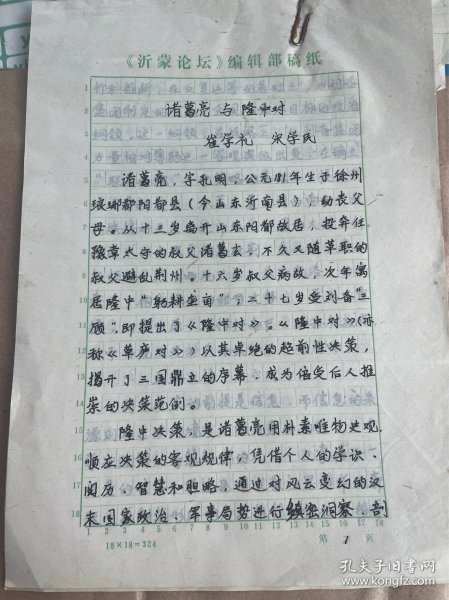 《沂蒙论坛》编辑部稿纸
诸葛亮与隆中对
崔学礼 宋学民
诸葛亮，字孔明，公元181年生于徐州
琅琊郡阳都县（今山东沂南县），幼丧父
母。从十三岁离开山东阳都故居，投奔任
豫章太守的叔父诸葛玄，不久又随革职的
叔父避乱荆州。十六岁叔父病故，次年寓
居隆中“躬耕垄亩”，二十七岁受刘备“三
顾”，即提出了《隆中对》。《隆中对》（亦
称《草庐对》）以其卓绝的超前性决策，
揭开了三国鼎立的序幕，成为倍受后人推
崇的决策范例。
隆中决策，是诸葛亮用朴素唯物史观，
顺应决策的客观规律，凭借个人的学识、
阅历、智慧和胆略，通过对风云变幻的汉
末国家政治、军事局势进行缜密洞察、剖
18×18=324
第 1 页
孔夫子旧书网
book.kongfz.com